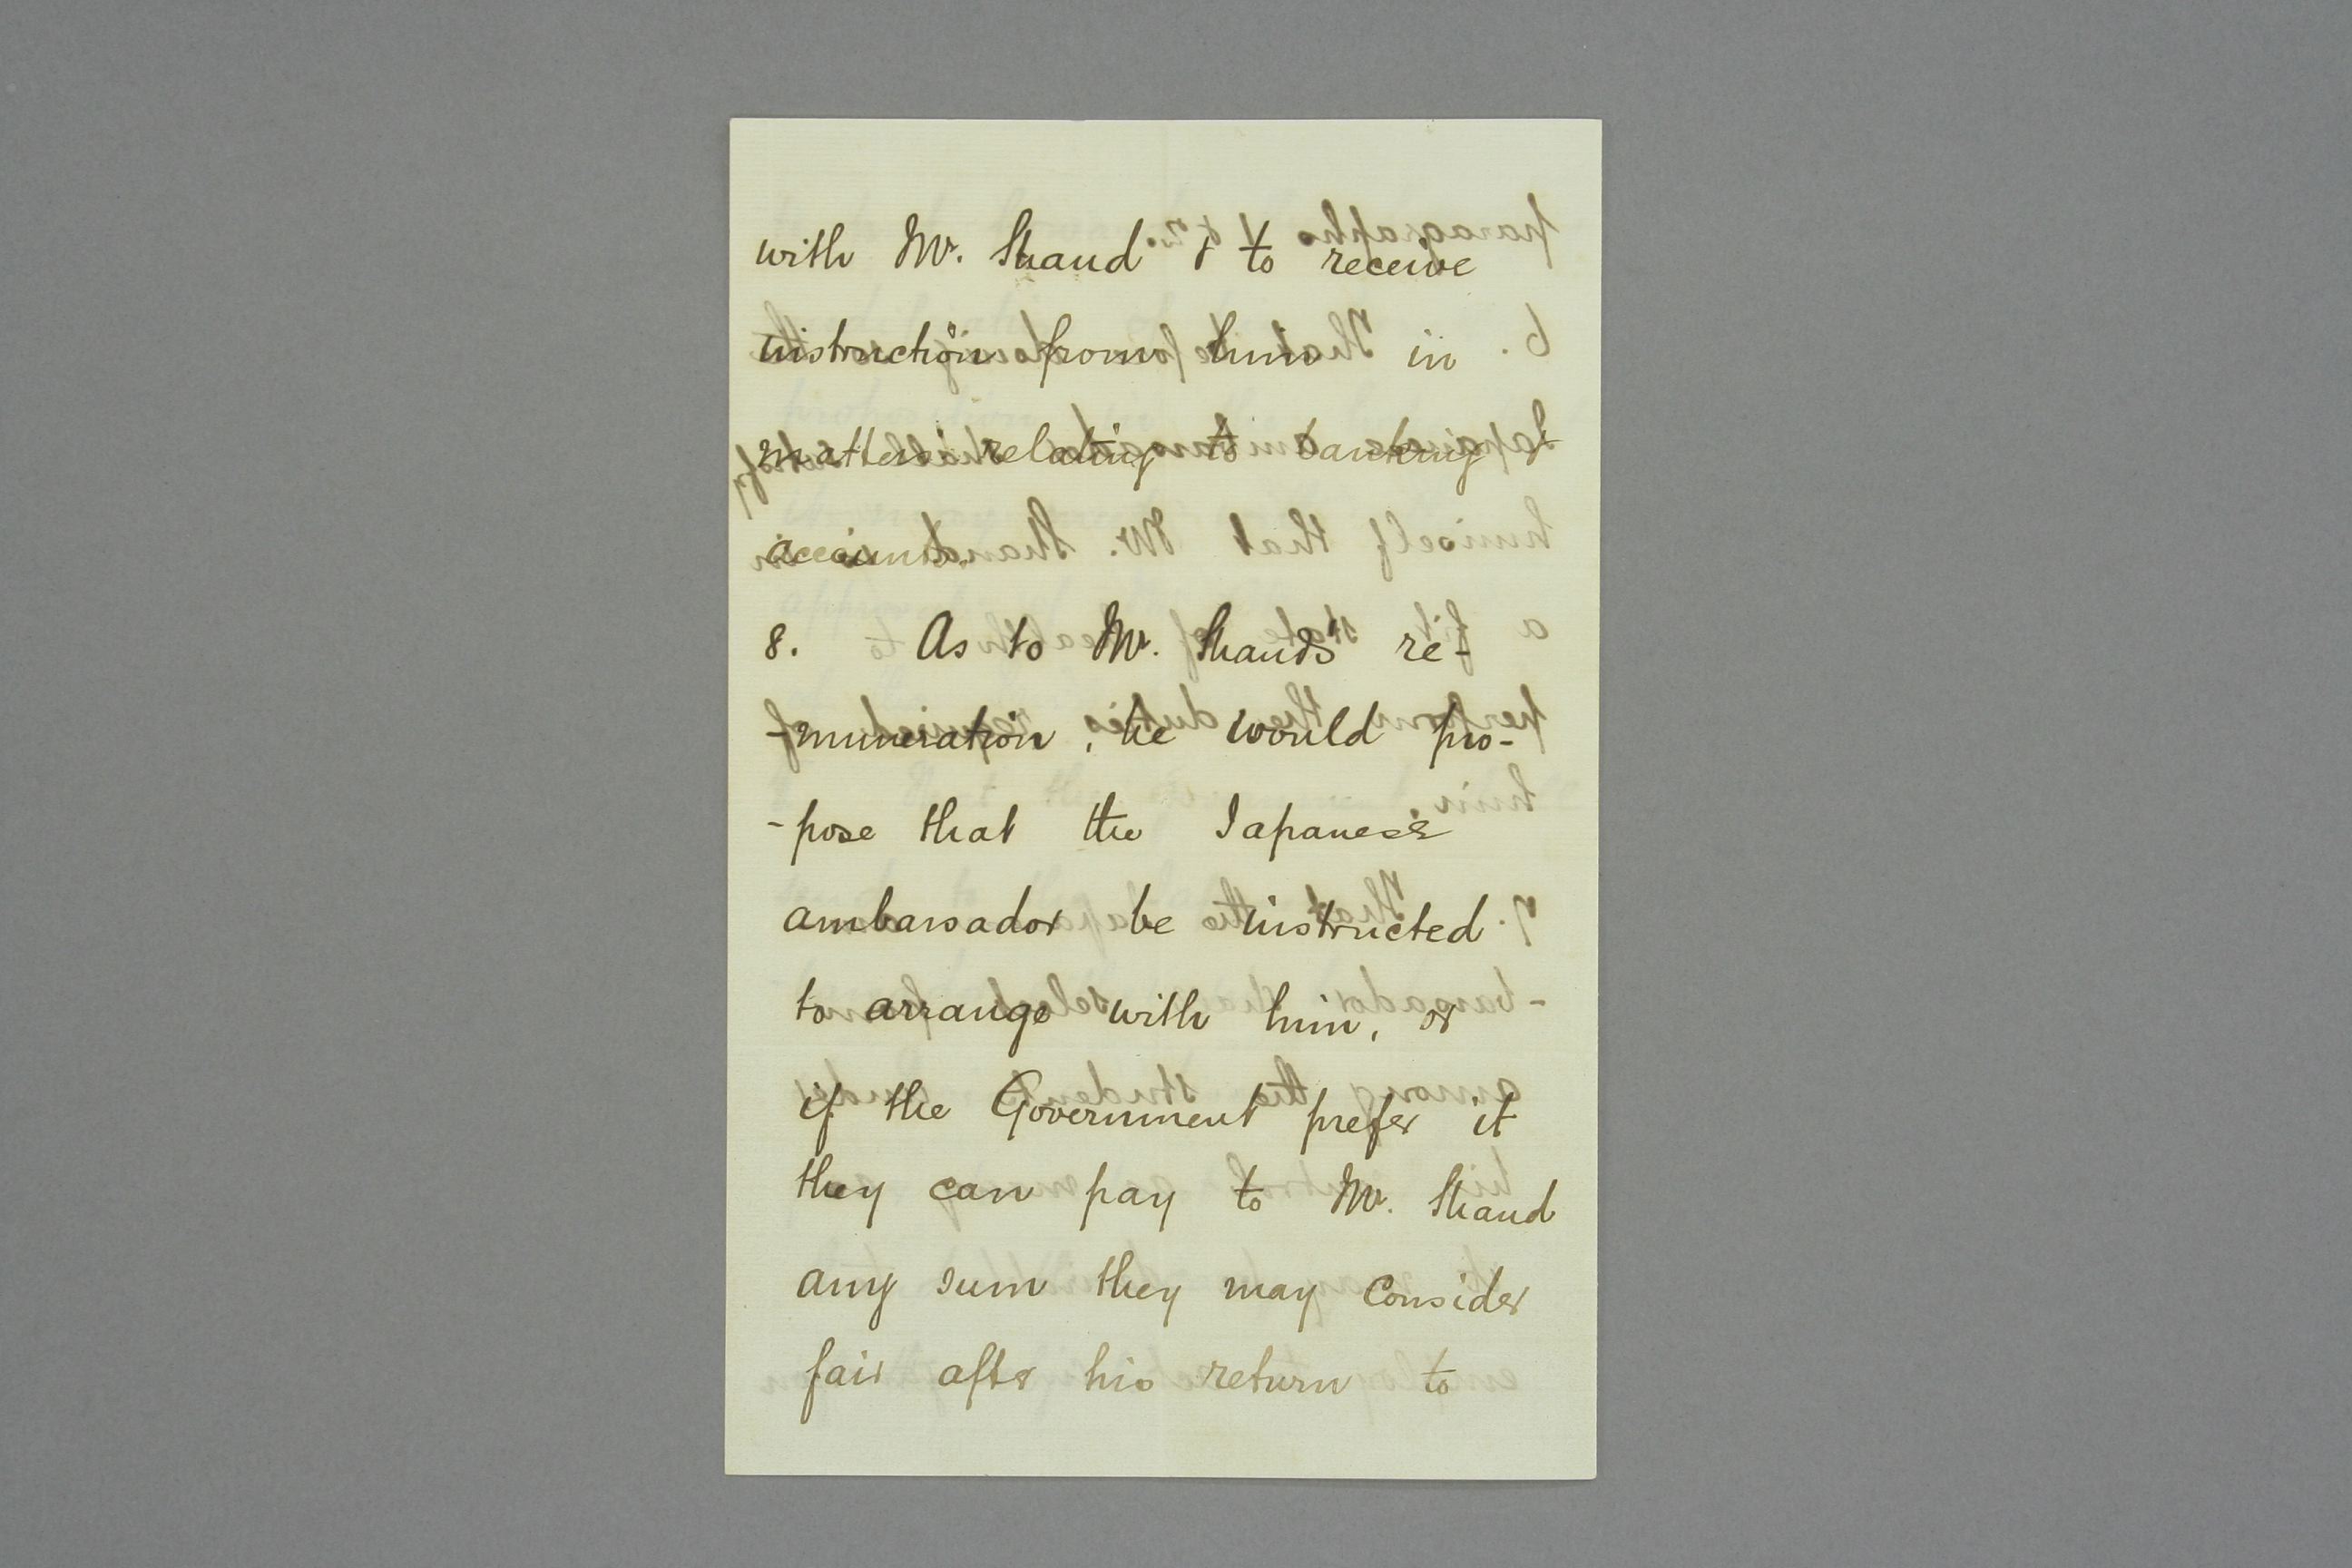 with Mr. Shand & to receive
instruction from him in
matters relating to banking &
accounts.
8. As to Mr. Shand's re-
-muneration, he would pro-
-pose that the Japanese
ambassador be instructed
to arrange with him, or
if the Government prefer it
they can pay to Mr. Shand
any sum they may consider
fair after his return to